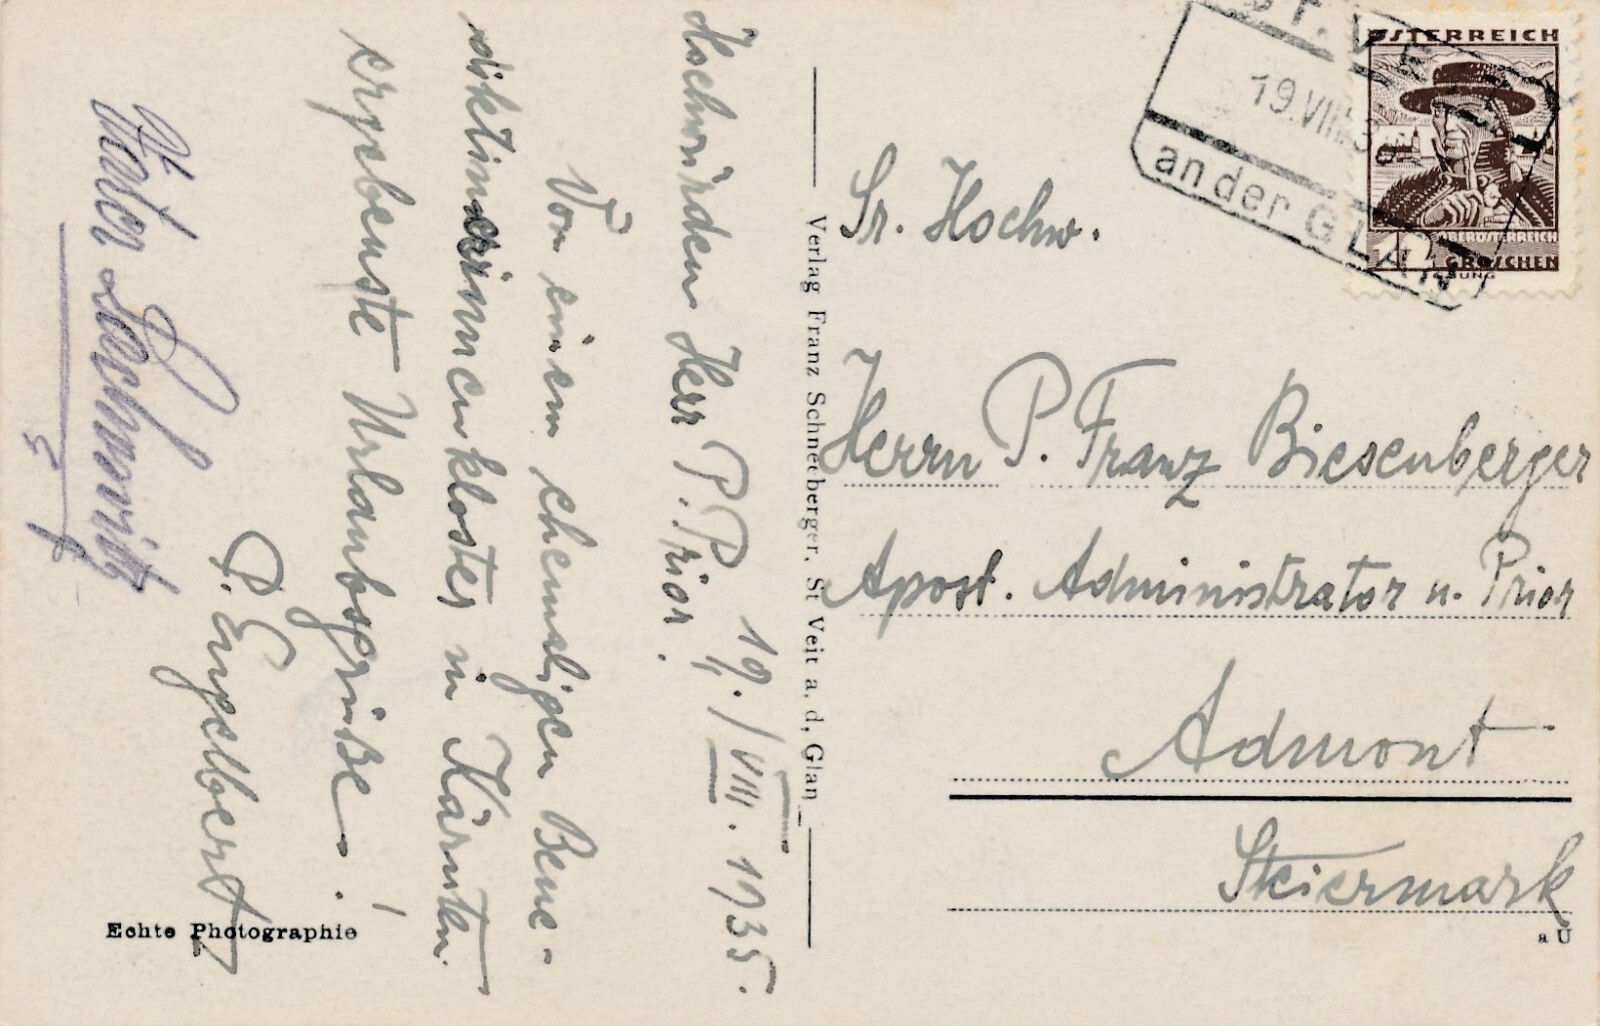 19./VIII. 1935.
Hochwürden Herr P. Prior!
Von einem ehemaligen Bene-
diktinerinnenkloster in Kärnten
ergebenste Urlaubsgrüße!
P. Engelbert
Pater
Verlag Franz Schneeberger, St Veit a. d. Glan
Echte Photographie
ÖSTERREICH
OBERÖSTERREICH
12 GROSCHEN
ST. VEIT
19.VIII.35
an der GLAN
Sr. Hochw.
Herrn P. Franz Biesenberger
Apost. Administrator u. Prior
Admont
Steiermark
a U